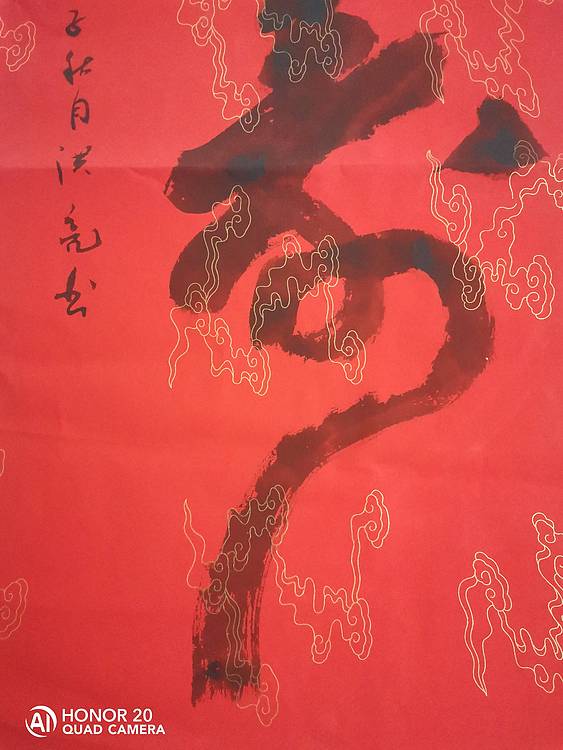 子秋月洪亮书
AI
HONOR 20
QUAD CAMERA